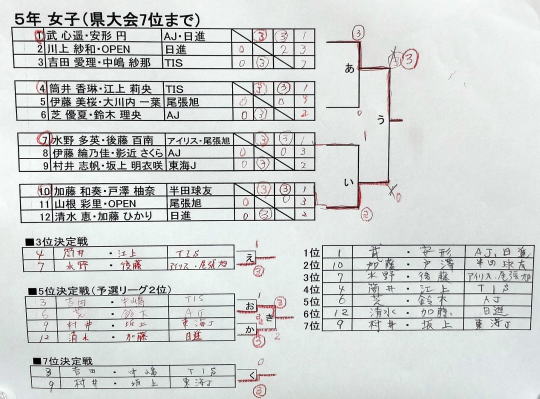 5年 女子(県大会7位まで)
1 武 心遥・安形 円 AJ・日進 3 3 1
2 川上 紗和・OPEN 日進 0 2 3
3 吉田 愛理・中嶋 紗那 TIS 0 3 2
4 筒井 香琳・江上 莉央 TIS 3 3 1
5 伊藤 美桜・大川内 一葉 尾張旭 0 0 3
6 芝 優夏・鈴木 理央 AJ 0 3 2
7 水野 多英・後藤 百南 アイリス・尾張旭
8 伊藤 綸乃佳・影近 さくら AJ 0 0 3
9 村井 志帆・坂上 明衣咲 東海J 0 3 2
10 加藤 和奏・戸澤 柚奈 半田球友 3 3 1
11 山根 彩里・OPEN 尾張旭 0 0 3
12 清水 恵・加藤 ひかり 日進 0 3 2
あ
い
う
■3位決定戦
4 筒井・江上 TIS
7 水野・後藤 アイリス・尾張旭
え
■5位決定戦(予選リーグ2位)
3 吉田・中嶋 TIS
6 芝・鈴木 AJ
9 村井・坂上 東海J
12 清水・加藤 日進
お
か
き
■7位決定戦
吉田・中嶋 TIS
9 村井・坂上 東海J
く
1位 1 武・安形 AJ,日進
2位 10 加藤・戸澤 半田球友
3位 7 水野・後藤 アイリス・尾張旭
4位 4 筒井・江上 TIS
5位 6 芝・鈴木 AJ
6位 12 清水・加藤 日進
7位 9 村井・坂上 東海J